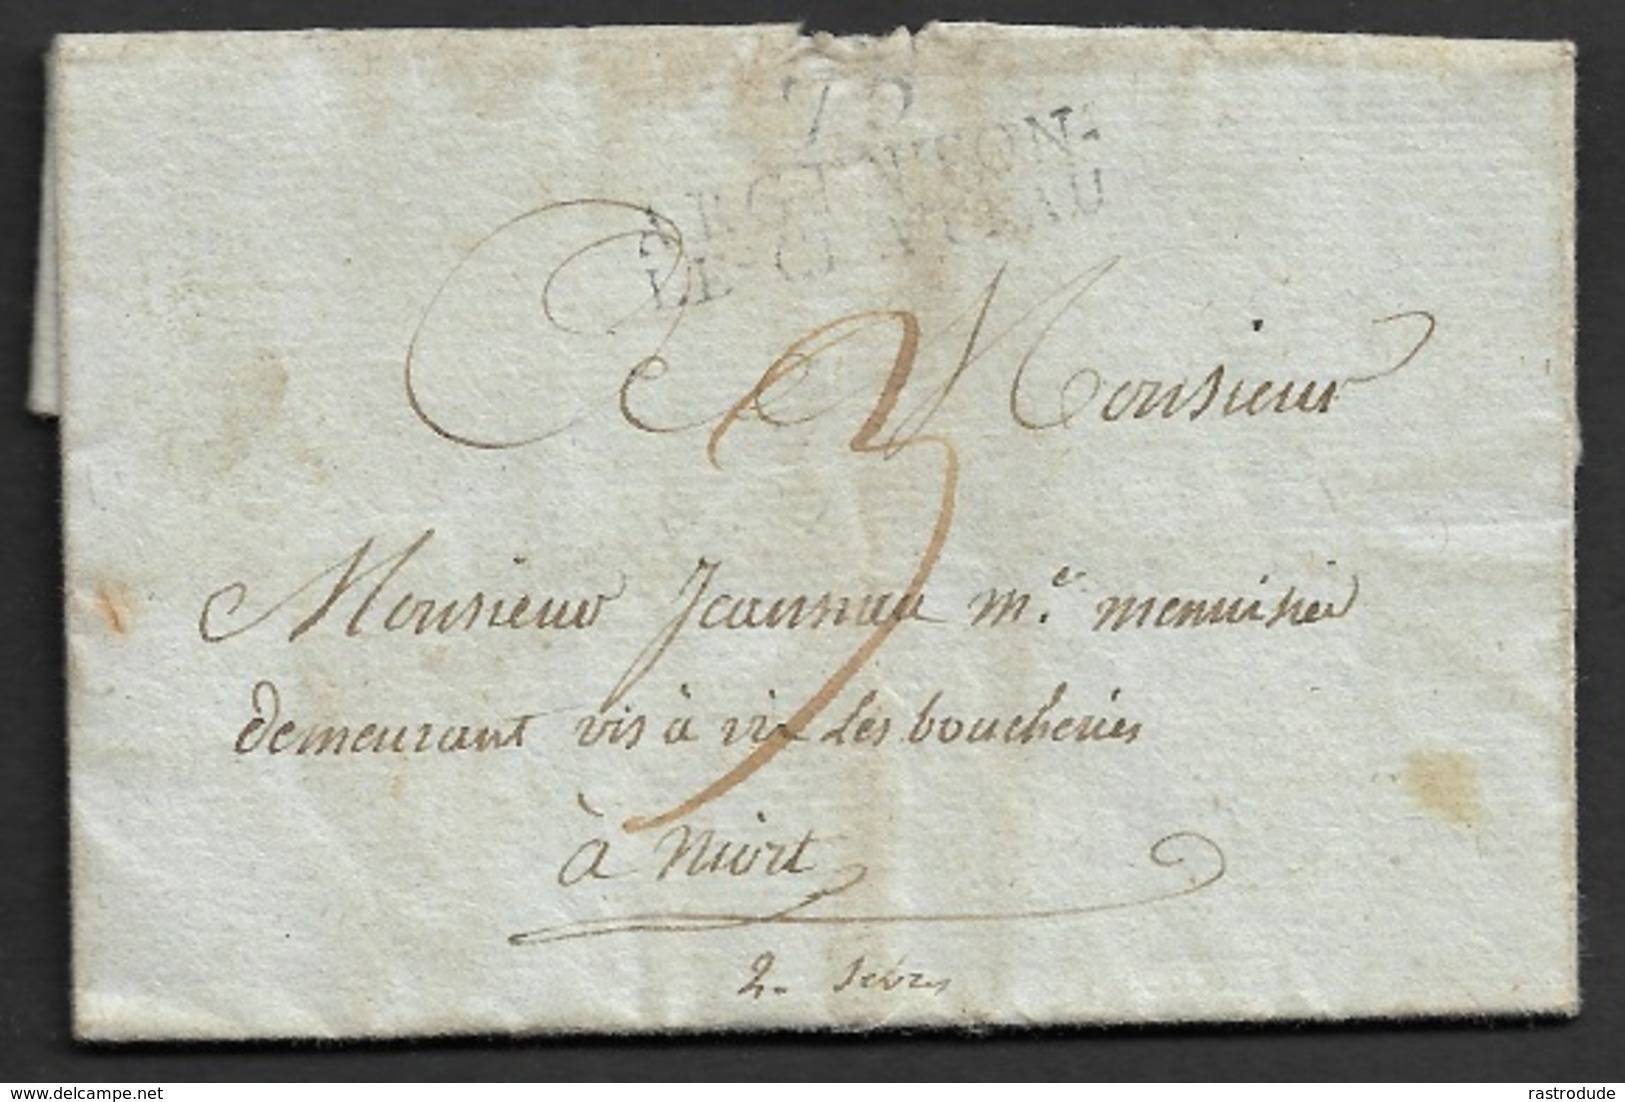 75
ARGENTON-
LE-CHATEAU
A Monsieur
3
Monsieur Jeanneau me. menuisier
demeurant vis à vis les boucheries
à Niort
2. Sèvres
delcampe.net
rastrodude